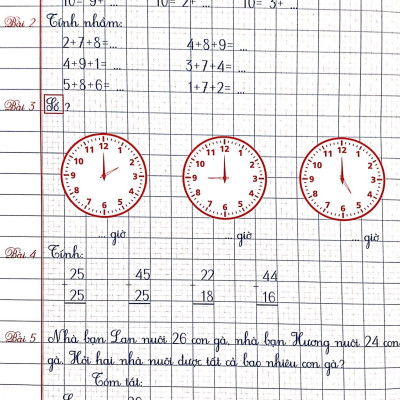 10= 9+ ... 10= 2+ ... 10= 3+ ...
Bài 2 Tính nhẩm:
2+7+8=... 4+8+9= ...
4+9+1= ... 3+7+4= ...
5+8+6= ... 1+7+2= ...
Bài 3 Số ?
12 1 2 3 4 5 6 7 8 9 10 11 12 1 2 3 4 5 6 7 8 9 10 11 12 1 2 3 4 5 6 7 8 9 10 11
... giờ ... giờ ... giờ
Bài 4 Tính:
25 45 22 44
25 25 18 16
Bài 5 Nhà bạn Lan nuôi 26 con gà, nhà bạn Hương nuôi 24 con
gà. Hỏi hai nhà nuôi được tất cả bao nhiêu con gà?
Tóm tắt: